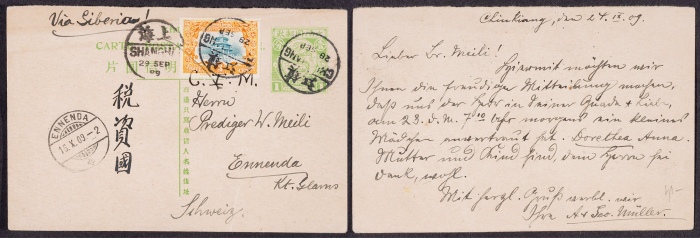 Via Siberia!
CARTE
上海
SHANGHAI
29 SEP
09
片
國
明
1
C. I. M.
Herrn
Prediger W. Meili
Ennenda
Kt. Glarus
Schweiz.
ENNENDA
16.X.09.-2
國資稅
Chinkiang, den 27. IX. 09.
Lieber Br. Meili!
Hiermit möchten wir
Ihnen die freudige Mitteilung machen,
daß uns der Herr in Seiner Gnade & Liebe,
am 23. d. M. 7 Uhr morgens ein kleines
Mädchen anvertraut hat. Dorothea Anna.
Mutter und Kind sind, dem Herrn sei
Dank, wohl.
Mit herzl. Gruß verbl. wir
Ihre A & Geo. Müller.